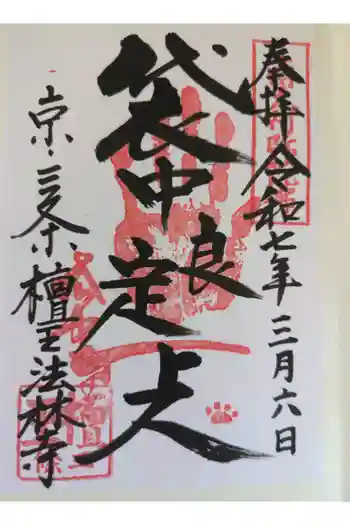 奉拝 令和七年三月六日
袋中良定上人
京・三条 檀王法林寺